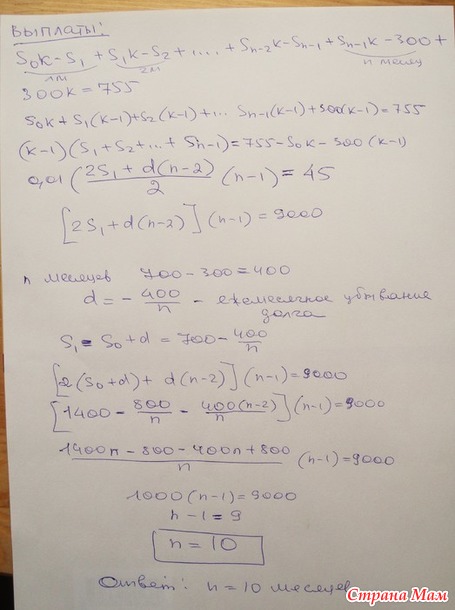 Выплаты:
S₀k - S₁ + S₁k - S₂ + .... + Sₙ₋₂k - Sₙ₋₁ + Sₙ₋₁k - 300 +
1м 2м n месяц
300k = 755
S₀k + S₁(k-1) + S₂(k-1) + ... Sₙ₋₁(k-1) + 300(k-1) = 755
(k-1)(S₁ + S₂ + ... + Sₙ₋₁) = 755 - S₀k - 300(k-1)
0,01 ( (2S₁ + d(n-2))/2 (n-1) = 45
[2S₁ + d(n-2)] (n-1) = 9000
n месяцев 700 - 300 = 400
d = - 400/n - ежемесячное убывание
долга
S₁ = S₀ + d = 700 - 400/n
[2(S₀+d) + d(n-2)] (n-1) = 9000
[1400 - 800/n - 400(n-2)/n] (n-1) = 9000
(1400n - 800 - 400n + 800)/n (n-1) = 9000
1000(n-1) = 9000
n - 1 = 9
n = 10
Ответ: n = 10 месяцев
Страна Мам